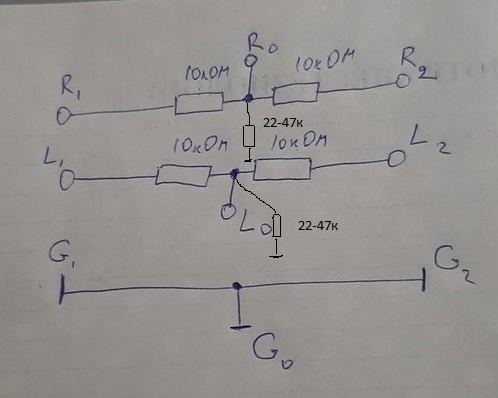 R₀
10кОм 10кОм
R₁ R₂
22-47к
10кОм 10кОм
L₁ L₂
L₀ 22-47к
G₁ G₂
G₀